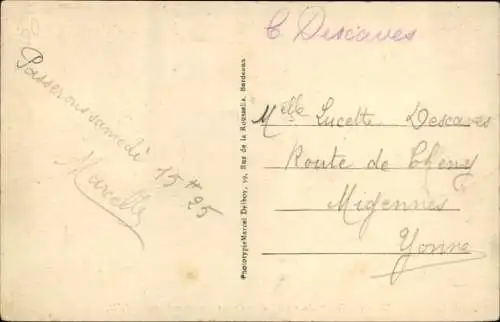 C Descaves
Passerons samedi
15 H 25
Marcelle
Phototypie Marcel Delboy, 99, Rue de la Rousselle, Bordeaux
Melle Lucette Descaves
Route de Cheny
Migennes
Yonne